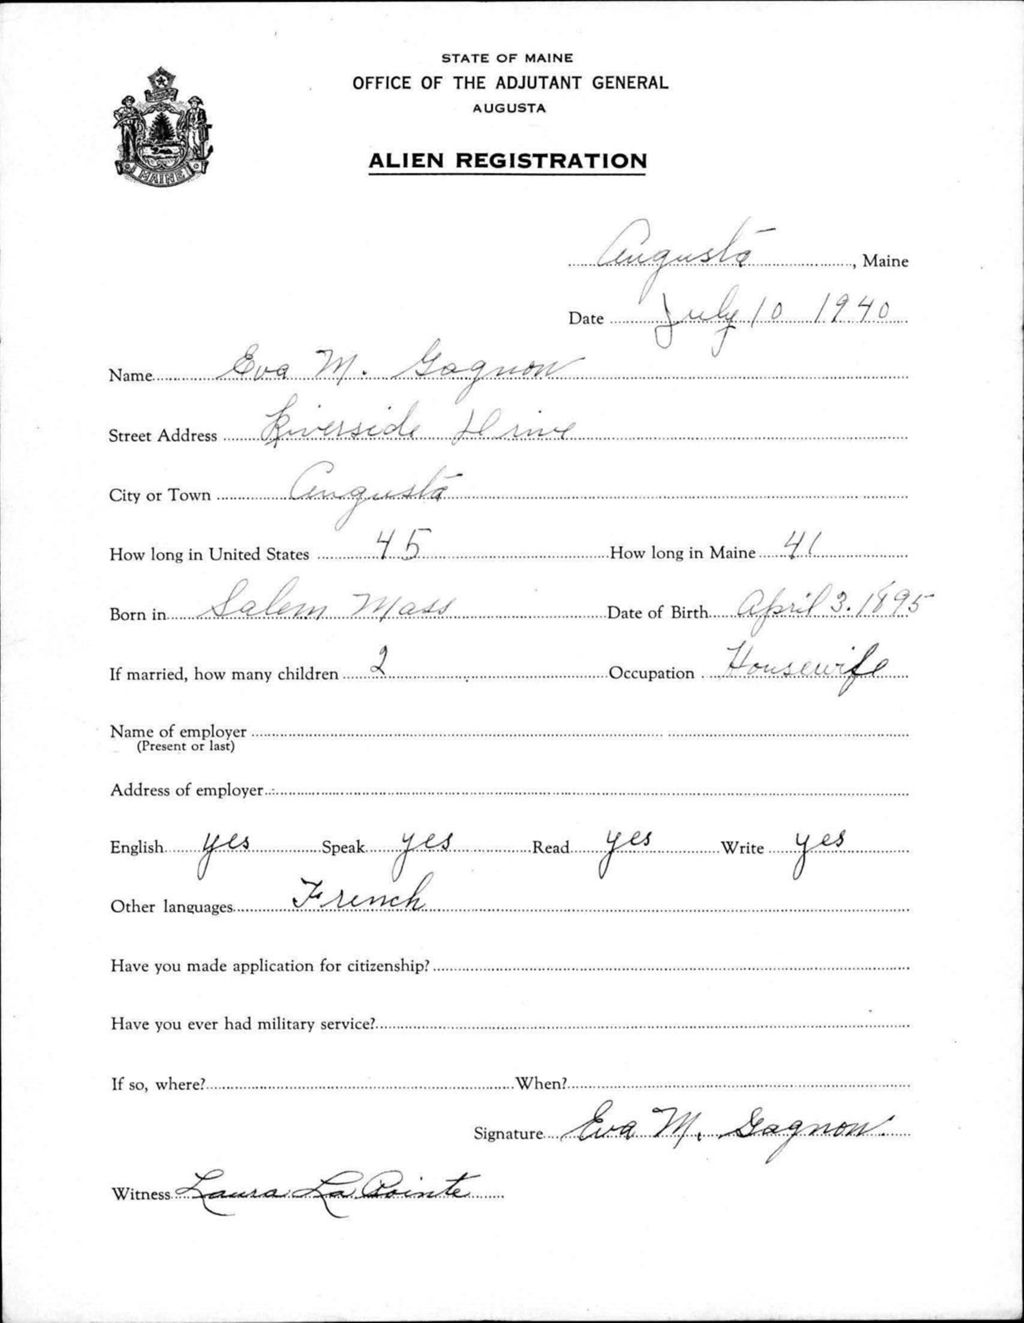 STATE OF MAINE
OFFICE OF THE ADJUTANT GENERAL
AUGUSTA
ALIEN REGISTRATION
MAINE
Augusta, Maine
Date July 10 1940
Name Eva M. Gagnon
Street Address Riverside Drive
City or Town Augusta
How long in United States 45 How long in Maine 41
Born in Salem Mass Date of Birth April 3. 1895
If married, how many children 2 Occupation Housewife
Name of employer
(Present or last)
Address of employer
English yes Speak yes Read yes Write yes
Other languages French
Have you made application for citizenship?
Have you ever had military service?
If so, where? When?
Signature Eva M. Gagnon
Witness Laura La Pointe